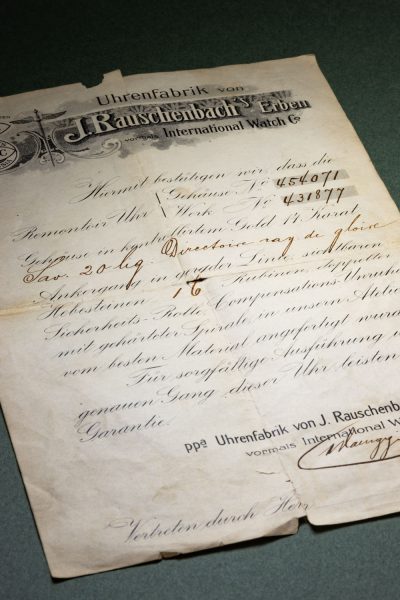 Uhrenfabrik von
J. Rauschenbach's Erben
vormals International Watch Co
Hiermit bestätigen wir, dass die
Gehäuse No 454071
Remontoir Uhr Werk No 431877
Gehäuse in kontrolliertem Gold 14 Karat
Sav. 20 lig Directoire ray de gloire
Ankergang in gerader Linie, sichtbaren
Hebesteinen, 16 Rubinen, doppelter
Sicherheits-Rolle, Compensations-Unruhe
mit gehärteter Spirale in unsern
vom besten Material angefertigt wurde
Für sorgfältige Ausführung
genauen Gang dieser Uhr leisten
Garantie.
ppa Uhrenfabrik von J. Rauschenba
vormals International W
Vertreten durch Herr